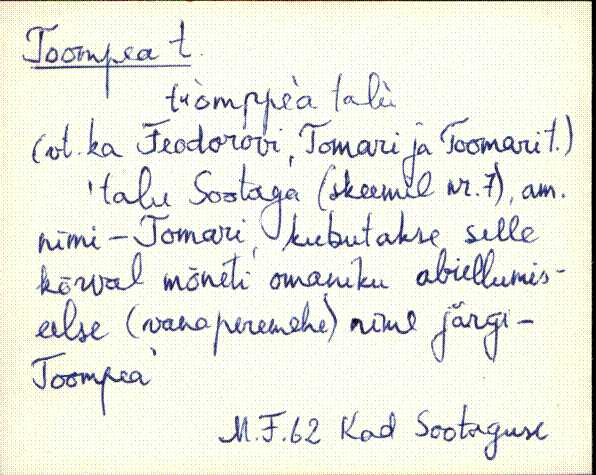 Toompea t.
tŭòmppèa talù
(vt. ka Feodorovi, Tomari ja Toomari t.)
'talu Sootaga (skeemil nr. 7), am.
nimi – Tomari, kutsutakse selle
kõrval mõneti omaniku abiellumis-
eelse (vanaperemehe) nime järgi –
Toompea'
M.F. 62 Kad Sootaguse